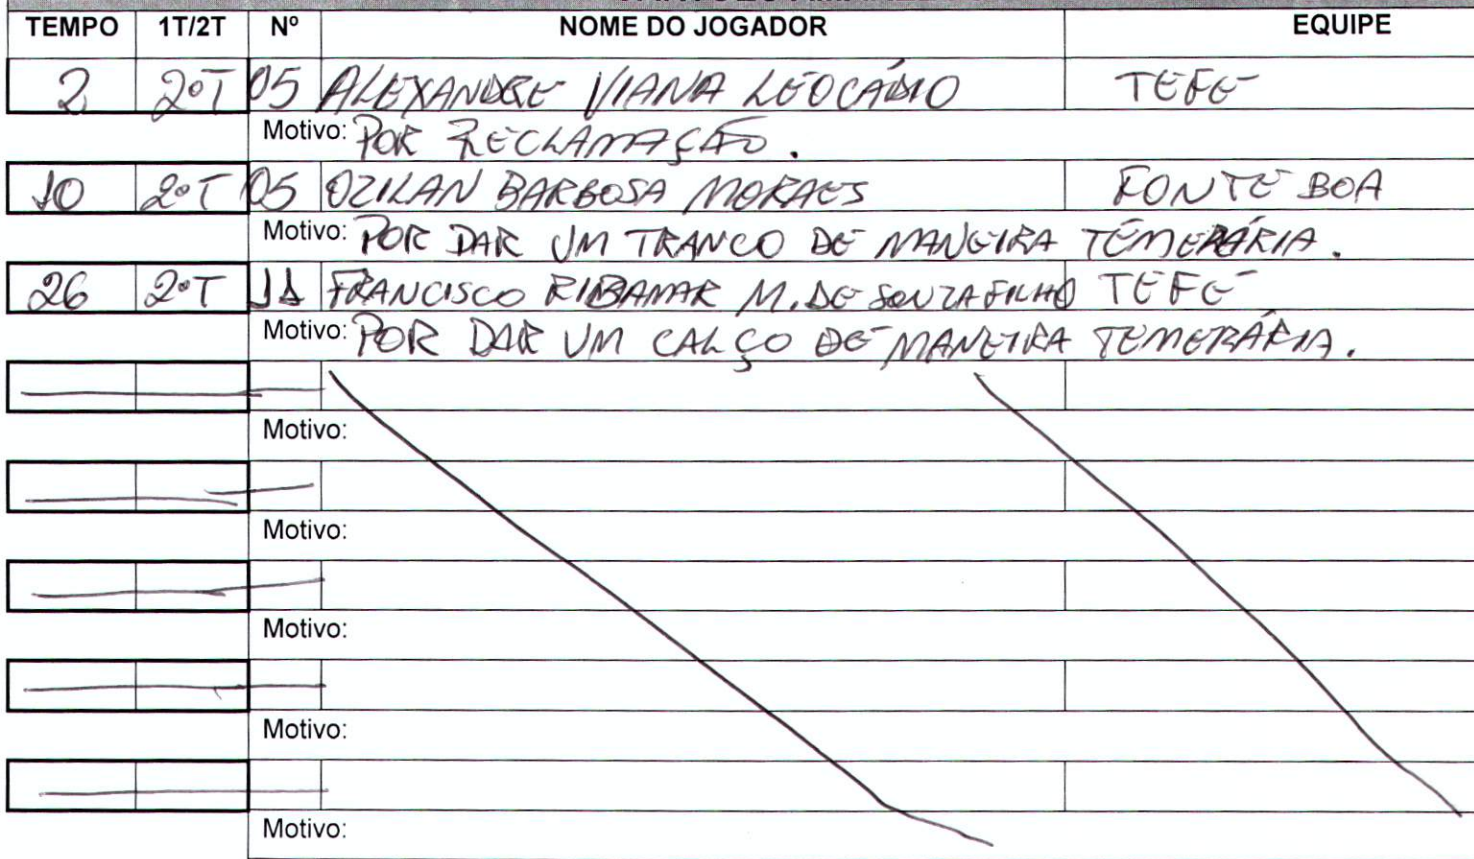 TEMPO 1T/2T Nº NOME DO JOGADOR EQUIPE
2 2ºT 05 ALEXANDRE VIANA LEOCÁDIO TEFÉ
Motivo: POR RECLAMAÇÃO.
10 2ºT 05 OZILAN BARBOSA MORAES FONTE BOA
Motivo: POR DAR UM TRANCO DE MANEIRA TEMERÁRIA.
26 2ºT 11 FRANCISCO RIBAMAR M. DE SOUZA FILHO TEFÉ
Motivo: POR DAR UM CALÇO DE MANEIRA TEMERÁRIA.
Motivo:
Motivo:
Motivo:
Motivo:
Motivo: